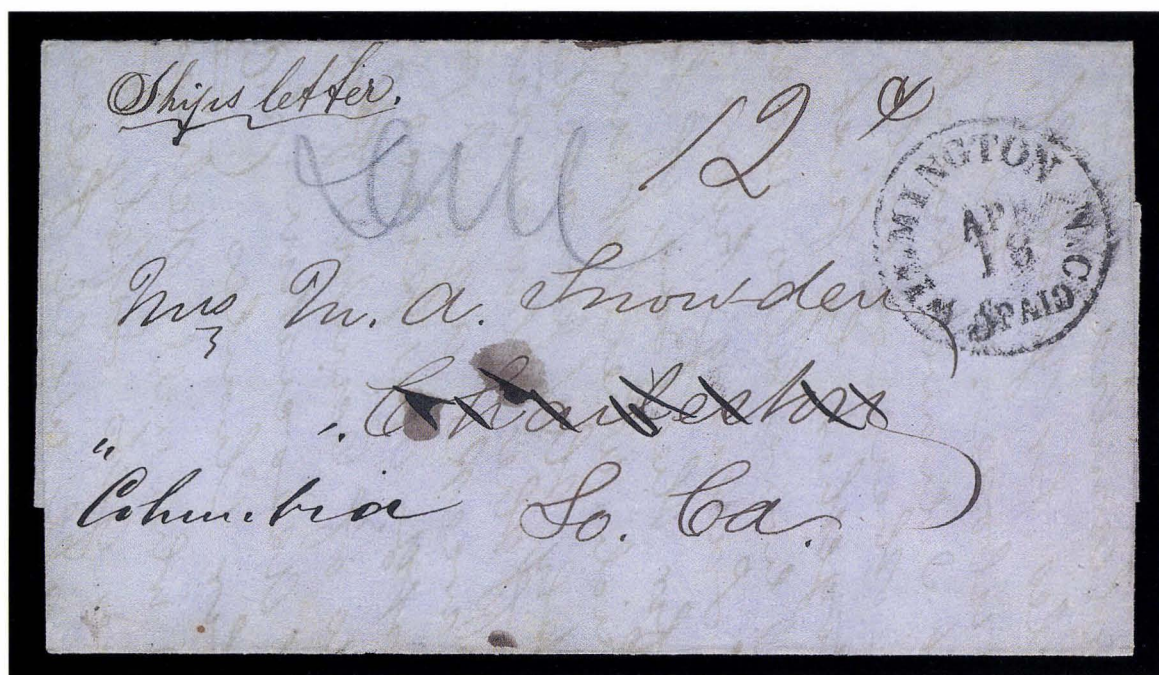 Ships letter.
12 &
WILMINGTON N.C.
APR
18
5 PAID
Mrs M. A. Snowden
Charleston
" Columbia So. Ca.